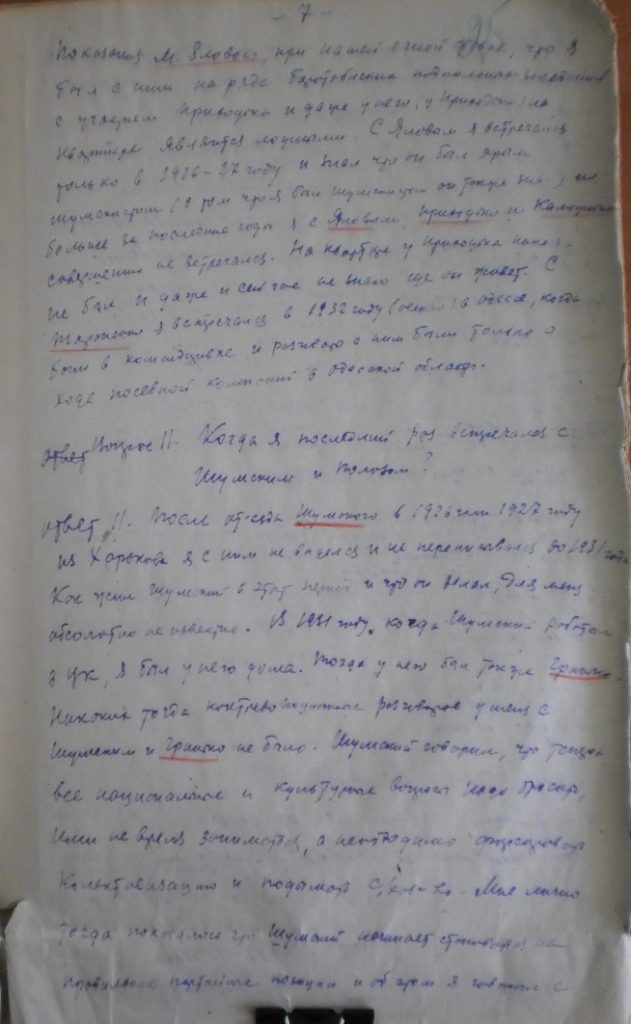 - 7 -
показания М. Ялового, при нашей очной ставке, что я
был с ним на ряде
с участием Приходько и даже у него (у Приходько) на
квартире является ложными. С Яловым я встречался
только в 1926-27 году и знал что он был ярым
шумскистом (о том что я был шумскистом он также знал) но
больше за последние годы я с Яловым, Приходько и
совершенно не встречался. На квартире у Приходька никогда
не был и даже и сейчас не знаю где он живет. С
я встречался в 1932 году (осенью) в Одессе, когда
был в командировке и разговор с ним были только о
ходе посевной компании в Одесской области.
ответ Вопрос 11. Когда я последний раз встречался с
Шумским и Полозом?
Ответ 11. После от'езда Шумского в 1926 или 1927 году
из Харькова я с ним не виделся и не переписывался до 1931 года
Как жил Шумский в этот период и что он делал, для меня
абсолютно не известно. В 1931 году, когда Шумский работал
в ЦК, я был у него дома. Тогда у него был также Гринько.
Никаких тогда разговоров у меня с
Шумским и Гринько не было. Шумский говорил, что теперь
все национальные и культурные вопросы надо бросать,
ими не время заниматься, а необходимо
колективизацию и подымать с/хоз-во. Мне лично
тогда показалось что Шумский начинает становиться на
правильные партийные позиции и об этом я говорил с